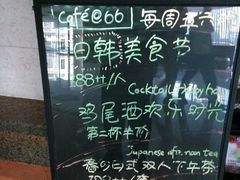 café@66 每周五六
日韩美食节
88元/人
Cocktail happy ho
鸡尾酒欢乐时光
第二杯半价
Japanese afternoon tea
春の日式 双人下午茶